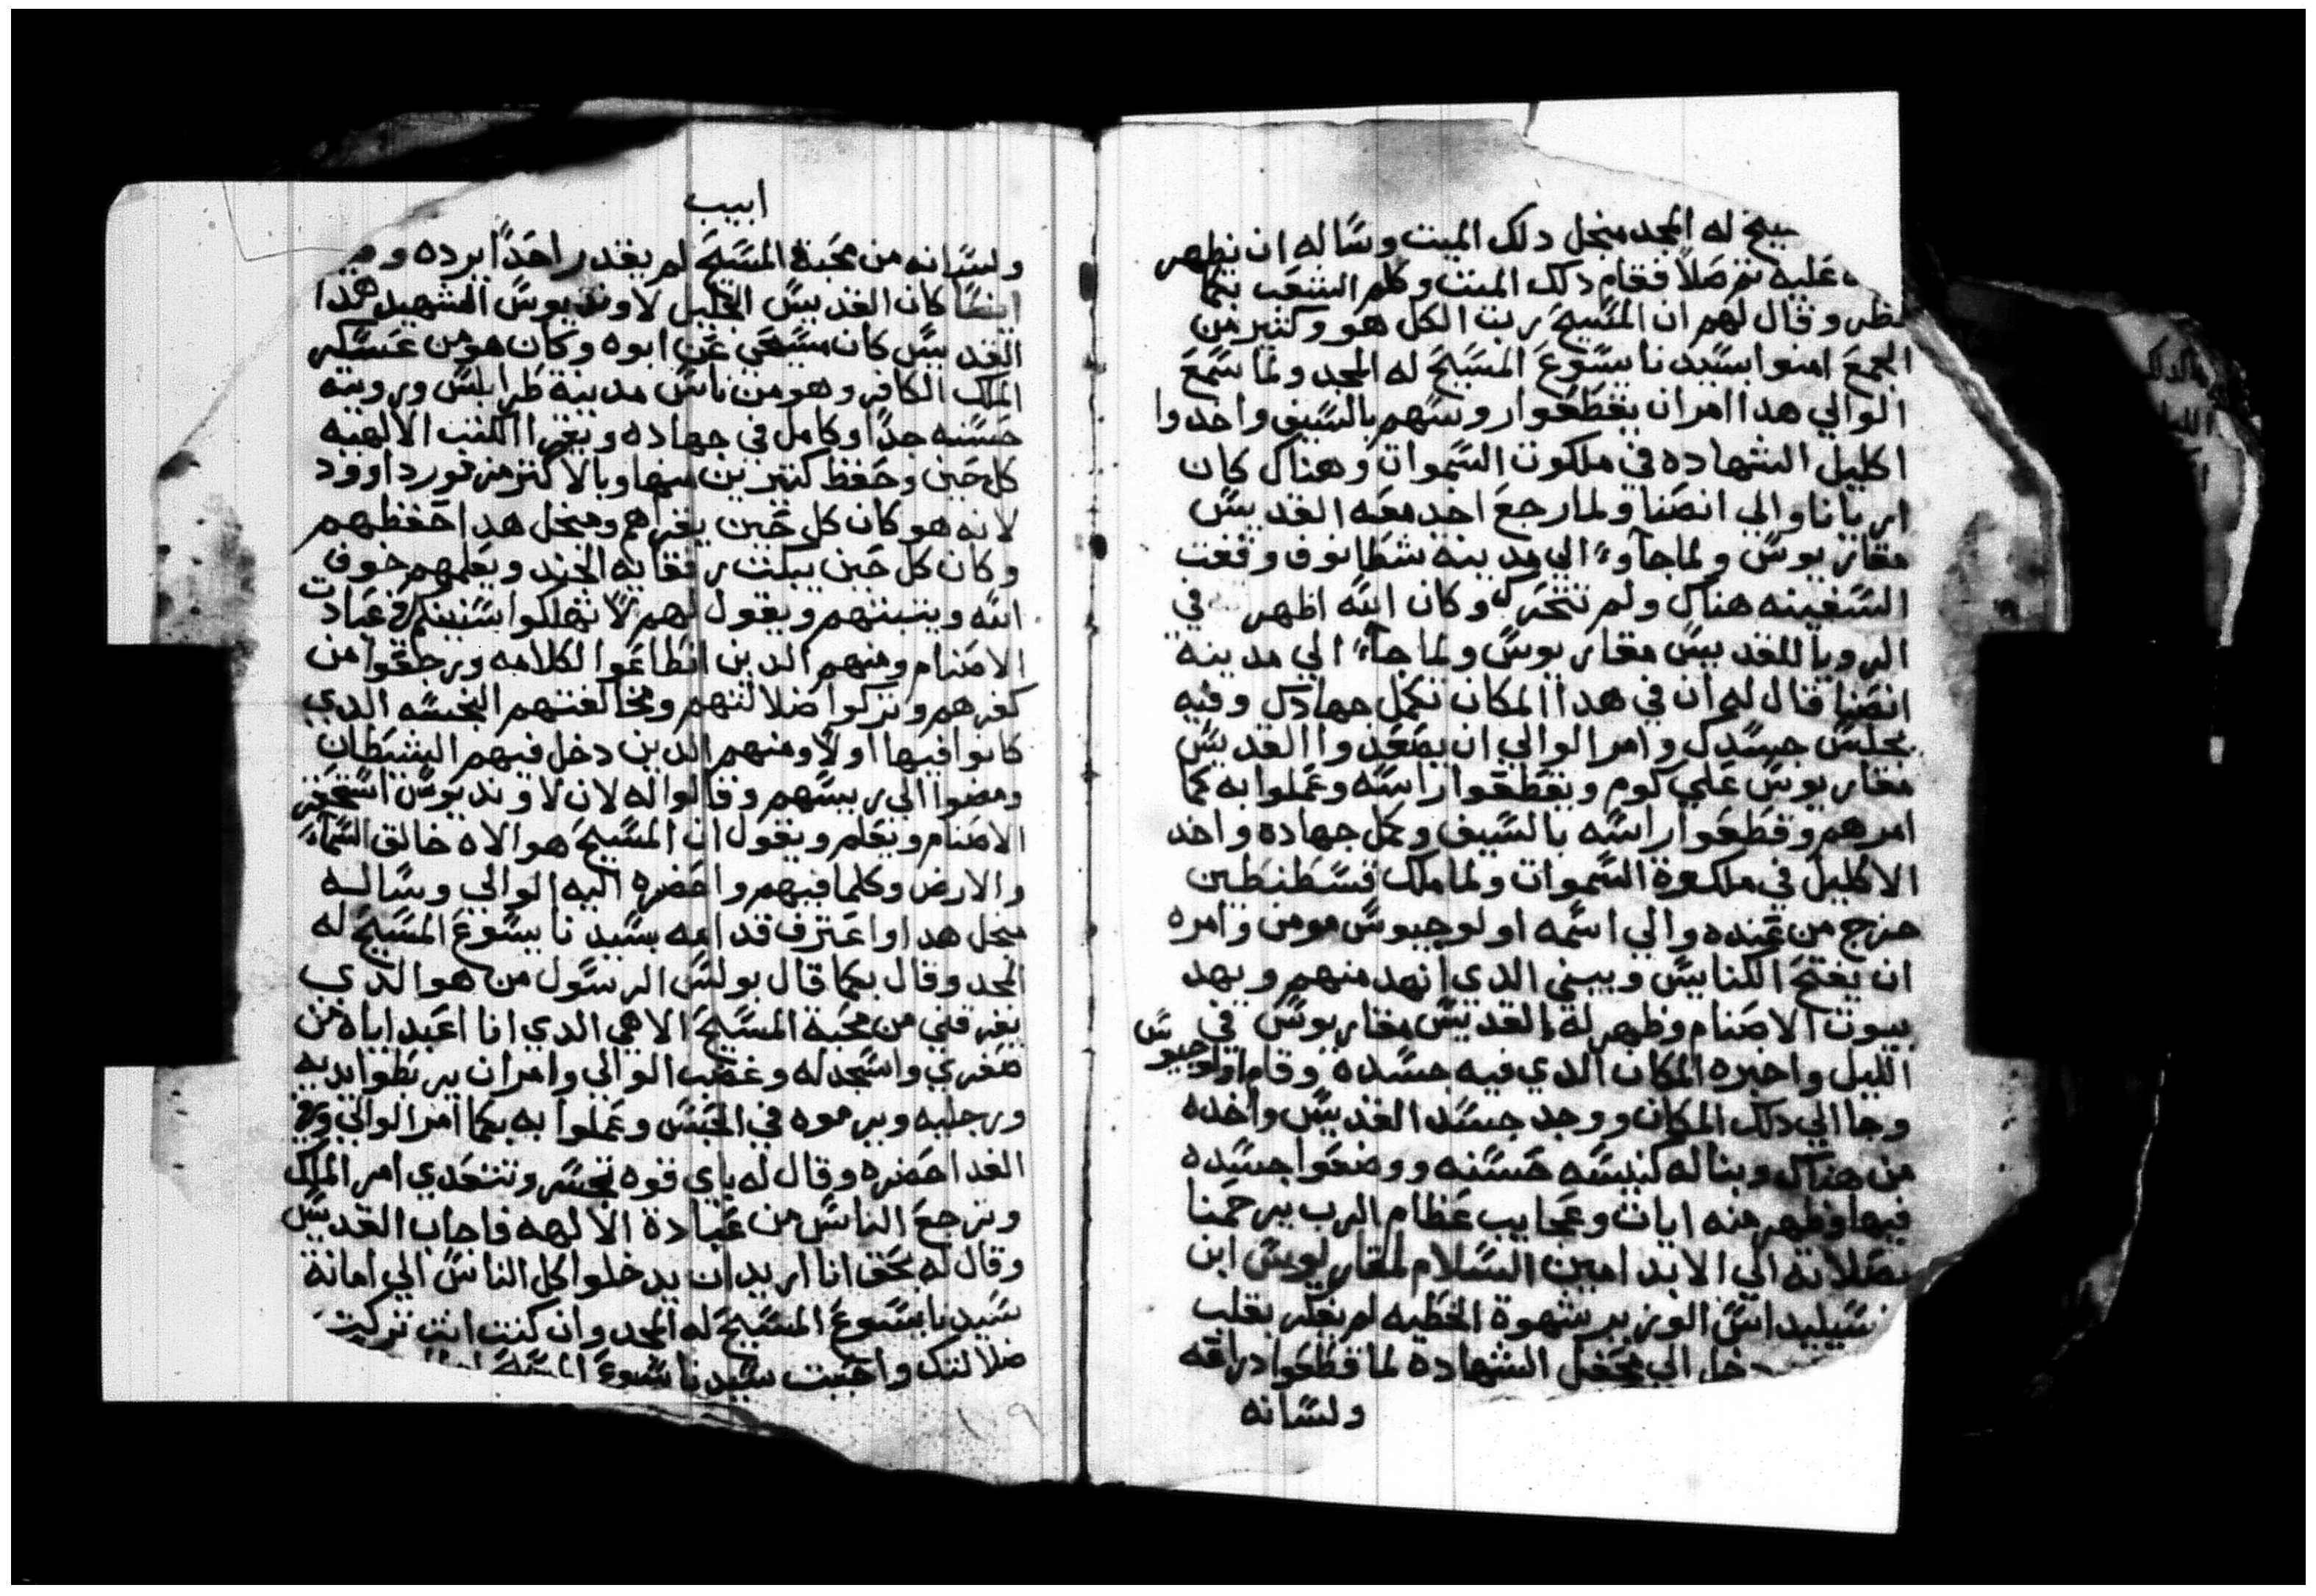 له المجد منجل دلك الميت وساله ان يظهر
عليه تم صلا فقام دلك الميت وكلم الشعب بكما
نظر وقال لهم ان المسيح رب الكل هو وكتير من
الجمع امنوا بسيدنا يسوع المسيح له المجد ولما سمع
الوالي هدا امر ان يقطعوا روسهم بالسيف واخدوا
اكليل الشهاده في ملكوت السموات وهناك كان
اريانا والي انصنا ولما رجع اخد معه القديس
مقاريوس ولما جاوا الي مدينه شطانوف وقفت
السفينه هناك ولم تتحرك وكان الله اظهر في
الرويا للقديس مقاريوس ولما جاء الي مدينة
انصنا قال له ان في هدا المكان تكمل جهادك وفيه
يجلس جسدك وامر الوالي ان يصعدوا القديس
مقاريوس علي كوم ويقطعوا راسه وعملوا به كما
امرهم وقطعوا راسه بالسيف وكمل جهاده واخد
الاكليل في ملكوة السموات ولما ملك قسطنطين
خرج من عنده والي اسمه اولوجيوس مومن وامره
ان يفتح الكنايس ويبني الدي انهد منهم ويهد
بيوت الاصنام وظهر له القديس مقاريوس في
الليل واخبره المكان الدي فيه جسده وقام اولوجيوس
وجا الي دلك المكان ووجد جسد القديس واخده
من هناك وبنا له كنيسه حسنه ووضعوا جسده
فيها وظهر منه ايات وعجايب عظام الرب يرحمنا
بصلاته الي الابد امين السلام لمقاريوس ابن
سيليداس الوزير شهوة الخطيه لم يفكر بقلب
دخل الي محفل الشهادة لما قطعوا دراعه
ولسانه
ابيب
ولسانه من محبة المسيح لم يقدر احدا يرده
ايضا كان القديس الجليل لاونديوس الشهيد هدا
القديس كان مسيحي عن ابوه وكان هو من عسكر
الملك الكافر وهو من ناس مدينة طرابلس ورويته
حسنه جدا وكامل في جهاده ويقرا الكتب الالهيه
كل حين وحفظ كتيرين منها وبالاكتر مزمور داوود
لانه هو كان كل حين يقراهم ومنجل هدا احفظهم
وكان كل حين يبكت رفقايه الجند ويعلمهم خوف
الله ويتبتهم ويقول لهم لا تهلكوا سنينكم في عبادت
الاصنام ومنهم الدين انطاعوا لكلامه ورجعوا من
كفرهم وتركوا ضلالتهم ومخالفتهم النجسه الدي
كانوا فيها اولا ومنهم الدين دخل فيهم الشيطان
ومضوا الي رييسهم وقالوا له لان لاونديوس استحقر
الاصنام ويعلم ويقول ان المسيح هو الاه خالق السماء
والارض وكلما فيهم واحضره اليه الوالي وساله
منجل هدا واعترف قدامه بسيدنا يسوع المسيح له
المجد وقال بكما قال بولس الرسول من هو الدي
يفرقني من محبة المسيح الاهي الدي انا اعبد اياه من
صغري واسجد له وغضب الوالي وامر ان يربطوا يديه
ورجليه ويرموه في الحبس وعملوا به بكما امر الوالي وفي
الغد احضره وقال له باي قوه تجسر وتتعدي امر الملك
وترجع الناس من عبادة الالهه فاجاب القديس
وقال له بحق انا اريد ان يدخلوا كل الناس الي امانة
سيدنا يسوع المسيح له المجد وان كنت انت تركت
ضلالتك واحببت سيدنا يسوع
١٠٩